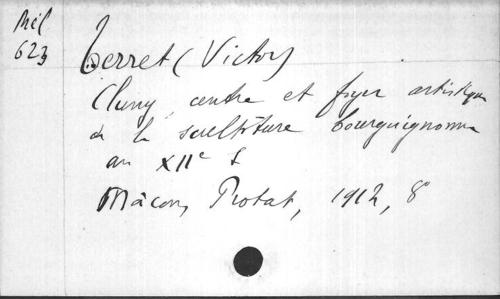 Mél
623
Terret (Victor)
Cluny centre et foyer artistique
de la sculpture bourguignonne
au XIIe s
Mâcon, Protat, 1912, 8°